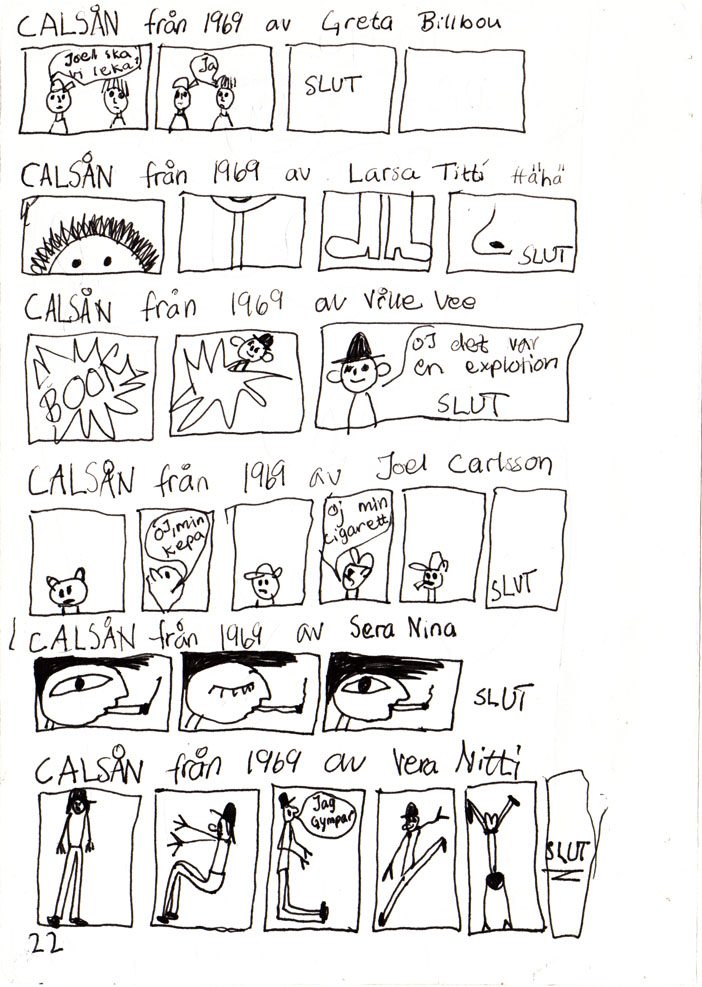 CALSÅN från 1969 av Greta Billbou
Joel ska
vi leka?
Ja
SLUT
CALSÅN från 1969 av Larsa Titti Hähä
SLUT
CALSÅN från 1969 av Ville Vee
BOOM
OJ det var
en explotion
SLUT
CALSÅN från 1969 av Joel Carlsson
OJ, min
kepa
Oj min
cigarett
SLUT
CALSÅN från 1969 av Sera Nina
SLUT
CALSÅN från 1969 av Vera Nitti
Jag
Gympar
SLUT
22